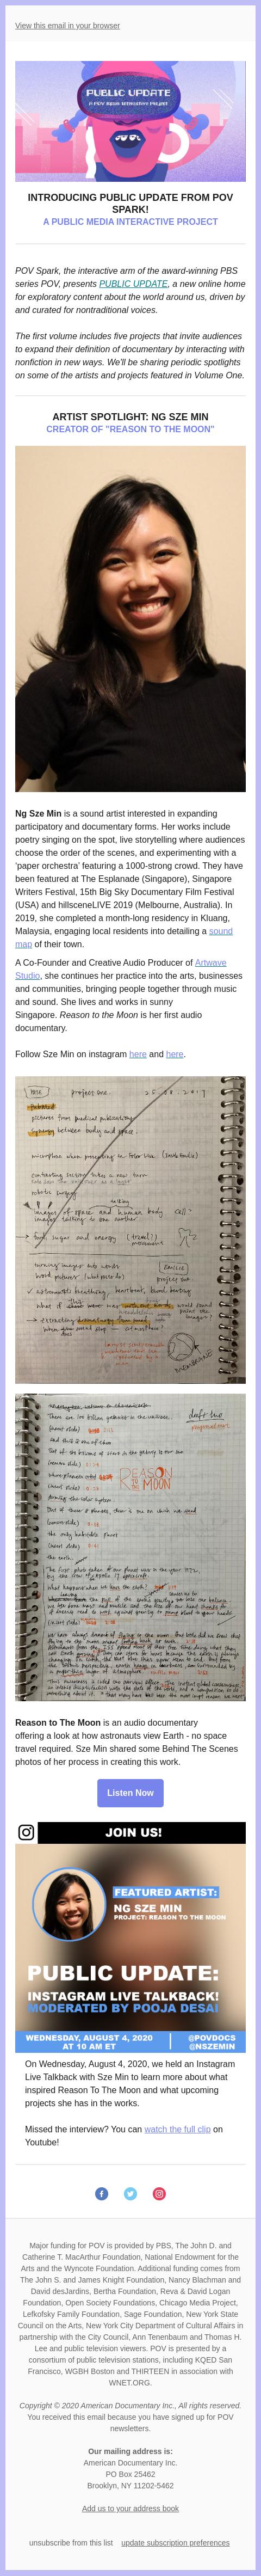 View this email in your browser
PUBLIC UPDATE
A POV Spark Interactive Project
INTRODUCING PUBLIC UPDATE FROM POV
SPARK!
A PUBLIC MEDIA INTERACTIVE PROJECT
POV Spark, the interactive arm of the award-winning PBS
series POV, presents PUBLIC UPDATE, a new online home
for exploratory content about the world around us, driven by
and curated for nontraditional voices.
The first volume includes five projects that invite audiences
to expand their definition of documentary by interacting with
nonfiction in new ways. We'll be sharing periodic spotlights
on some of the artists and projects featured in Volume One.
ARTIST SPOTLIGHT: NG SZE MIN
CREATOR OF "REASON TO THE MOON"
Ng Sze Min is a sound artist interested in expanding
participatory and documentary forms. Her works include
poetry singing on the spot, live storytelling where audiences
choose the order of the scenes, and experimenting with a
'paper orchestra' featuring a 1000-strong crowd. They have
been featured at The Esplanade (Singapore), Singapore
Writers Festival, 15th Big Sky Documentary Film Festival
(USA) and hillsceneLIVE 2019 (Melbourne, Australia). In
2019, she completed a month-long residency in Kluang,
Malaysia, engaging local residents into detailing a sound
map of their town.
A Co-Founder and Creative Audio Producer of Artwave
Studio, she continues her practice into the arts, businesses
and communities, bringing people together through music
and sound. She lives and works in sunny
Singapore. Reason to the Moon is her first audio
documentary.
Follow Sze Min on instagram here and here.
project one. 25.08.2017
pictures from medical publicity
synergy between body and space.
robotic surgery
images of space and human body
fuel, sugar and energy
turning images into words
project out.
astronaut's breathing, heartbeat, blood bursting
There are 100 billion galaxies in the universe.
draft two
REASON
TO THE
MOON
the only habitable planet
the earth.
Reason to The Moon is an audio documentary
offering a look at how astronauts view Earth - no space
travel required. Sze Min shared some Behind The Scenes
photos of her process in creating this work.
Listen Now
JOIN US!
FEATURED ARTIST:
NG SZE MIN
PROJECT: REASON TO THE MOON
PUBLIC UPDATE:
INSTAGRAM LIVE TALKBACK!
MODERATED BY POOJA DESAI
WEDNESDAY, AUGUST 4, 2020
AT 8PM ET
@POVDOCS
@NSZEMIN
On Wednesday, August 4, 2020, we held an Instagram
Live Talkback with Sze Min to learn more about what
inspired Reason To The Moon and what upcoming
projects she has in the works.
Missed the interview? You can watch the full clip on
Youtube!
Major funding for POV is provided by PBS, The John D. and
Catherine T. MacArthur Foundation, National Endowment for the
Arts and the Wyncote Foundation. Additional funding comes from
The John S. and James Knight Foundation, Nancy Blachman and
David desJardins, Bertha Foundation, Reva & David Logan
Foundation, Open Society Foundations, Chicago Media Project,
Lefkofsky Family Foundation, Sage Foundation, New York State
Council on the Arts, New York City Department of Cultural Affairs in
partnership with the City Council, Ann Tenenbaum and Thomas H.
Lee and public television viewers. POV is presented by a
consortium of public television stations, including KQED San
Francisco, WGBH Boston and THIRTEEN in association with
WNET.ORG.
Copyright © 2020 American Documentary Inc., All rights reserved.
You received this email because you have signed up for POV
newsletters.
Our mailing address is:
American Documentary Inc.
PO Box 25462
Brooklyn, NY 11202-5462
Add us to your address book
unsubscribe from this list update subscription preferences